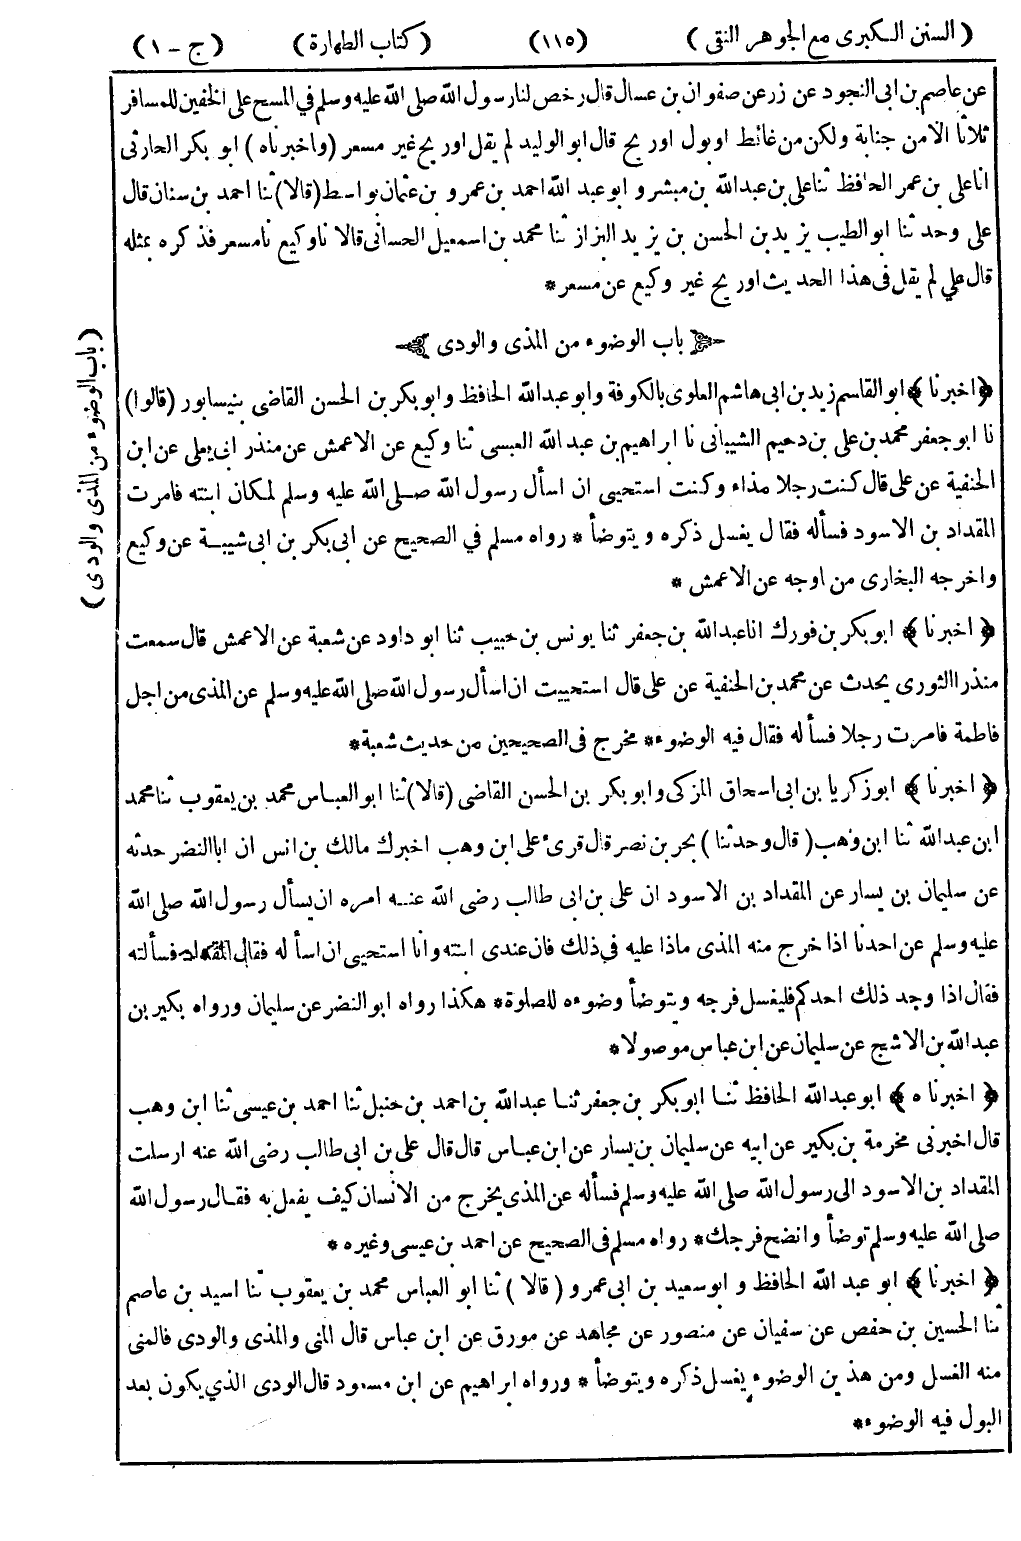 (السنن الكبرى مع الجوهر النقى) (١١٥) (كتاب الطهارة) (ج - ١)
عن عاصم بن ابى النجود عن زر عن صفوان بن عسال قال رخص لنا رسول الله صلى الله عليه وسلم في المسح على الخفين للمسافر
ثلاثا الا من جنابة ولكن من غائط او بول او ريح قال ابو الوليد لم يقل او ريح غير مسعر (واخبرناه) ابو بكر الحارثى
انا على بن عمر الحافظ ثنا على بن عبد الله بن مبشر و ابو عبد الله احمد بن عمرو بن عثمان بواسط (قالا) ثنا احمد بن سنان قال
على وحدثنا ابو الطيب يزيد بن الحسن بن يزيد البزاز ثنا محمد بن اسمعيل الحسانى قالا نا وكيع نا مسعر فذكره بمثله
قال علي لم يقل فى هذا الحديث او ريح غير وكيع عن مسعر *
باب الوضوء من المذى والودى
(باب الوضوء من المذى والودى)
﴿اخبرنا﴾ ابو القاسم زيد بن ابى هاشم العلوى بالكوفة وابو عبد الله الحافظ وابو بكر بن الحسن القاضى بنيسابور (قالوا)
نا ابو جعفر محمد بن على بن دحيم الشيبانى نا ابراهيم بن عبد الله العبسى ثنا وكيع عن الاعمش عن منذر ابى يعلى عن ابن
الحنفية عن على قال كنت رجلا مذاء وكنت استحيى ان اسأل رسول الله صلى الله عليه وسلم لمكان ابنته فامرت
المقداد بن الاسود فسأله فقال يغسل ذكره ويتوضأ * رواه مسلم في الصحيح عن ابى بكر بن ابى شيبة عن وكيع
واخرجه البخارى من اوجه عن الاعمش *
﴿اخبرنا﴾ ابو بكر بن فورك انا عبد الله بن جعفر ثنا يونس بن حبيب ثنا ابو داود عن شعبة عن الاعمش قال سمعت
منذرا الثورى يحدث عن محمد بن الحنفية عن على قال استحييت ان اسأل رسول الله صلى الله عليه وسلم عن المذى من اجل
فاطمة فامرت رجلا فسأله فقال فيه الوضوء * مخرج فى الصحيحين من حديث شعبة *
﴿اخبرنا﴾ ابو زكريا بن ابى اسحاق المزكى وابو بكر بن الحسن القاضى (قالا) ثنا ابو العباس محمد بن يعقوب ثنا محمد
ابن عبد الله ثنا ابن وهب (قال وحدثنا) بحر بن نصر قال قرئ على ابن وهب اخبرك مالك بن انس ان ابا النضر حدثه
عن سليمان بن يسار عن المقداد بن الاسود ان على بن ابى طالب رضى الله عنه امره ان يسأل رسول الله صلى الله
عليه وسلم عن احدنا اذا خرج منه المذى ماذا عليه في ذلك فان عندى ابنته وانا استحيى ان اسأله فقال المقداد فسألته
فقال اذا وجد ذلك احدكم فليغسل فرجه ويتوضأ وضوءه للصلوة * هكذا رواه ابو النضر عن سليمان ورواه بكير بن
عبد الله بن الاشج عن سليمان عن ابن عباس موصولا *
﴿اخبرناه﴾ ابو عبد الله الحافظ ثنا ابو بكر بن جعفر ثنا عبد الله بن احمد بن حنبل ثنا احمد بن عيسى ثنا ابن وهب
قال اخبرنى مخرمة بن بكير عن ابيه عن سليمان بن يسار عن ابن عباس قال قال على بن ابى طالب رضى الله عنه ارسلت
المقداد بن الاسود الى رسول الله صلى الله عليه وسلم فسأله عن المذى يخرج من الانسان كيف يفعل به فقال رسول الله
صلى الله عليه وسلم توضأ وانضح فرجك * رواه مسلم فى الصحيح عن احمد بن عيسى وغيره *
﴿اخبرنا﴾ ابو عبد الله الحافظ و ابو سعيد بن ابى عمرو (قالا) ثنا ابو العباس محمد بن يعقوب ثنا اسيد بن عاصم
ثنا الحسين بن حفص عن سفيان عن منصور عن مجاهد عن مورق عن ابن عباس قال المنى والمذى والودى فالمنى
منه الغسل ومن هذين الوضوء يغسل ذكره ويتوضأ * ورواه ابراهيم عن ابن مسعود قال الودى الذي يكون بعد
البول فيه الوضوء *